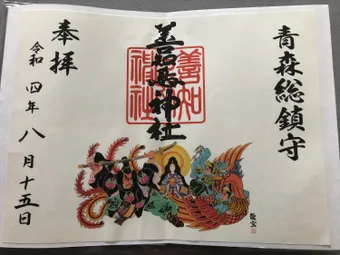 青森総鎮守
善知鳥神社
奉拝
令和四年八月十五日
善知
神社